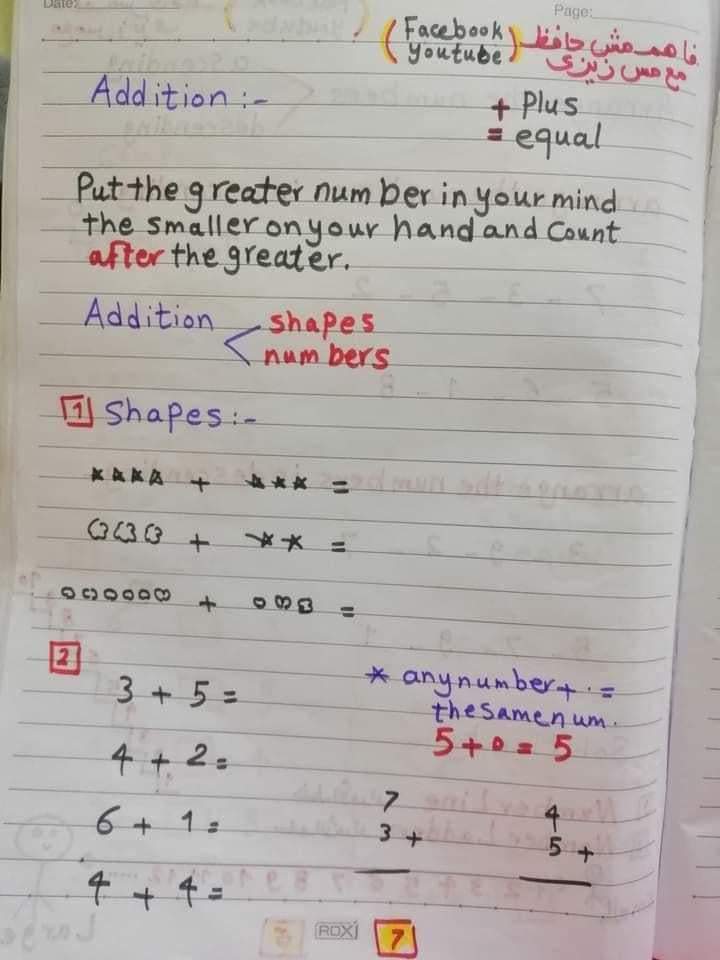 Date:
Page:
(Facebook youtube) فاهم مش حافظ
مع مس زيزي
Addition :-
+ Plus
= equal
Put the greater number in your mind
the smaller on your hand and Count
after the greater.
Addition
shapes
numbers
1 Shapes :-
+ =
+ =
+ =
2
3 + 5 =
4 + 2 =
6 + 1 =
4 + 4 =
* any number + · =
the same num.
5 + 0 = 5
7
3 +
4
5 +
RDX
7